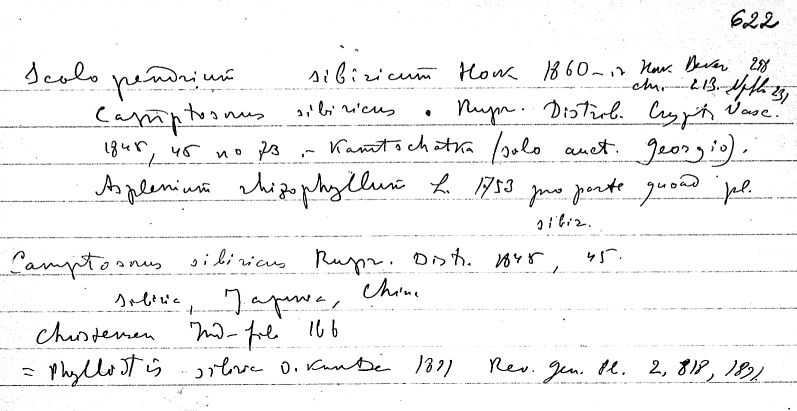 622
Scolopendrium sibiricum Hook 1860 - in Hook
Camptosorus sibiricus . Rupr. Distrib. Crypt. Vasc.
1845, 45 no 73 - Kamtschatka (solo auct. Georgio).
Asplenium rhizophyllum L. 1753 pro parte quoad pl.
sibir.
Camptosorus sibiricus Rupr. Distr. 1845, 45.
Sibiria, Japonia, China
Christensen Ind-fil 166
= Phyllitis sibirica O. Kuntze 1891 Rev. gen. Pl. 2, 818, 1891